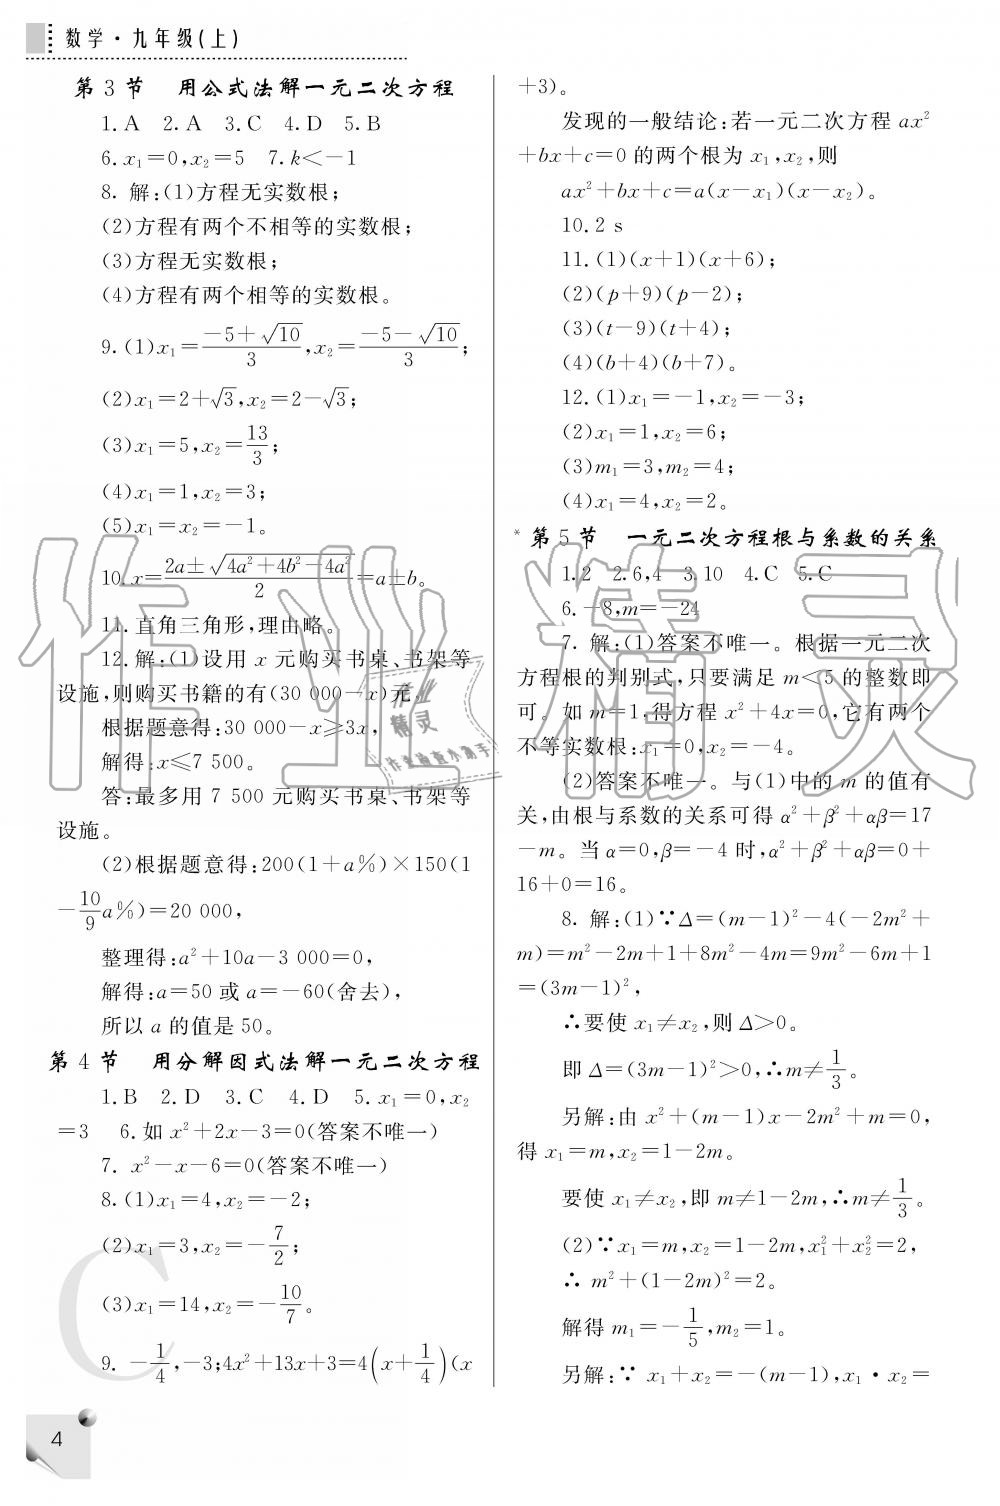 数学·九年级(上)
第3节 用公式法解一元二次方程
1.A 2.A 3.C 4.D 5.B
6.x₁=0,x₂=5 7.k<-1
8. 解:(1)方程无实数根;
(2)方程有两个不相等的实数根;
(3)方程无实数根;
(4)方程有两个相等的实数根。
9.(1)x₁=(-5+√10)/3,x₂=(-5-√10)/3;
(2)x₁=2+√3,x₂=2-√3;
(3)x₁=5,x₂=13/3;
(4)x₁=1,x₂=3;
(5)x₁=x₂=-1。
10.x=(2a±√(4a²+4b²-4a²))/2=a±b。
11.直角三角形,理由略。
12.解:(1)设用 x 元购买书桌、书架等
设施,则购买书籍的有(30 000-x)元,
根据题意得:30 000-x≥3x,
解得:x≤7 500。
答:最多用 7 500 元购买书桌、书架等
设施。
(2)根据题意得:200(1+a%)×150(1
-10/9a%)=20 000,
整理得:a²+10a-3 000=0,
解得:a=50 或 a=-60(舍去),
所以 a 的值是 50。
第4节 用分解因式法解一元二次方程
1.B 2.D 3.C 4.D 5.x₁=0,x₂
=3 6.如 x²+2x-3=0(答案不唯一)
7. x²-x-6=0(答案不唯一)
8.(1)x₁=4,x₂=-2;
(2)x₁=3,x₂=-7/2;
(3)x₁=14,x₂=-10/7。
9. -1/4,-3;4x²+13x+3=4(x+1/4)(x
+3)。
发现的一般结论:若一元二次方程 ax²
+bx+c=0 的两个根为 x₁,x₂,则
ax²+bx+c=a(x-x₁)(x-x₂)。
10.2 s
11.(1)(x+1)(x+6);
(2)(p+9)(p-2);
(3)(t-9)(t+4);
(4)(b+4)(b+7)。
12.(1)x₁=-1,x₂=-3;
(2)x₁=1,x₂=6;
(3)m₁=3,m₂=4;
(4)x₁=4,x₂=2。
*第5节 一元二次方程根与系数的关系
1.2 2.6,4 3.10 4.C 5.C
6.-8,m=-24
7. 解:(1)答案不唯一。根据一元二次
方程根的判别式,只要满足 m<5 的整数即
可。如 m=1,得方程 x²+4x=0,它有两个
不等实数根:x₁=0,x₂=-4。
(2)答案不唯一。与(1)中的 m 的值有
关,由根与系数的关系可得 α²+β²+αβ=17
-m。当 α=0,β=-4 时,α²+β²+αβ=0+
16+0=16。
8. 解:(1)∵Δ=(m-1)²-4(-2m²+
m)=m²-2m+1+8m²-4m=9m²-6m+1
=(3m-1)²,
∴要使 x₁≠x₂,则 Δ>0。
即 Δ=(3m-1)²>0,∴m≠1/3。
另解:由 x²+(m-1)x-2m²+m=0,
得 x₁=m,x₂=1-2m。
要使 x₁≠x₂,即 m≠1-2m,∴m≠1/3。
(2)∵x₁=m,x₂=1-2m,x₁²+x₂²=2,
∴ m²+(1-2m)²=2。
解得 m₁=-1/5,m₂=1。
另解:∵ x₁+x₂=-(m-1),x₁·x₂=
4
作业精灵
作业
精灵